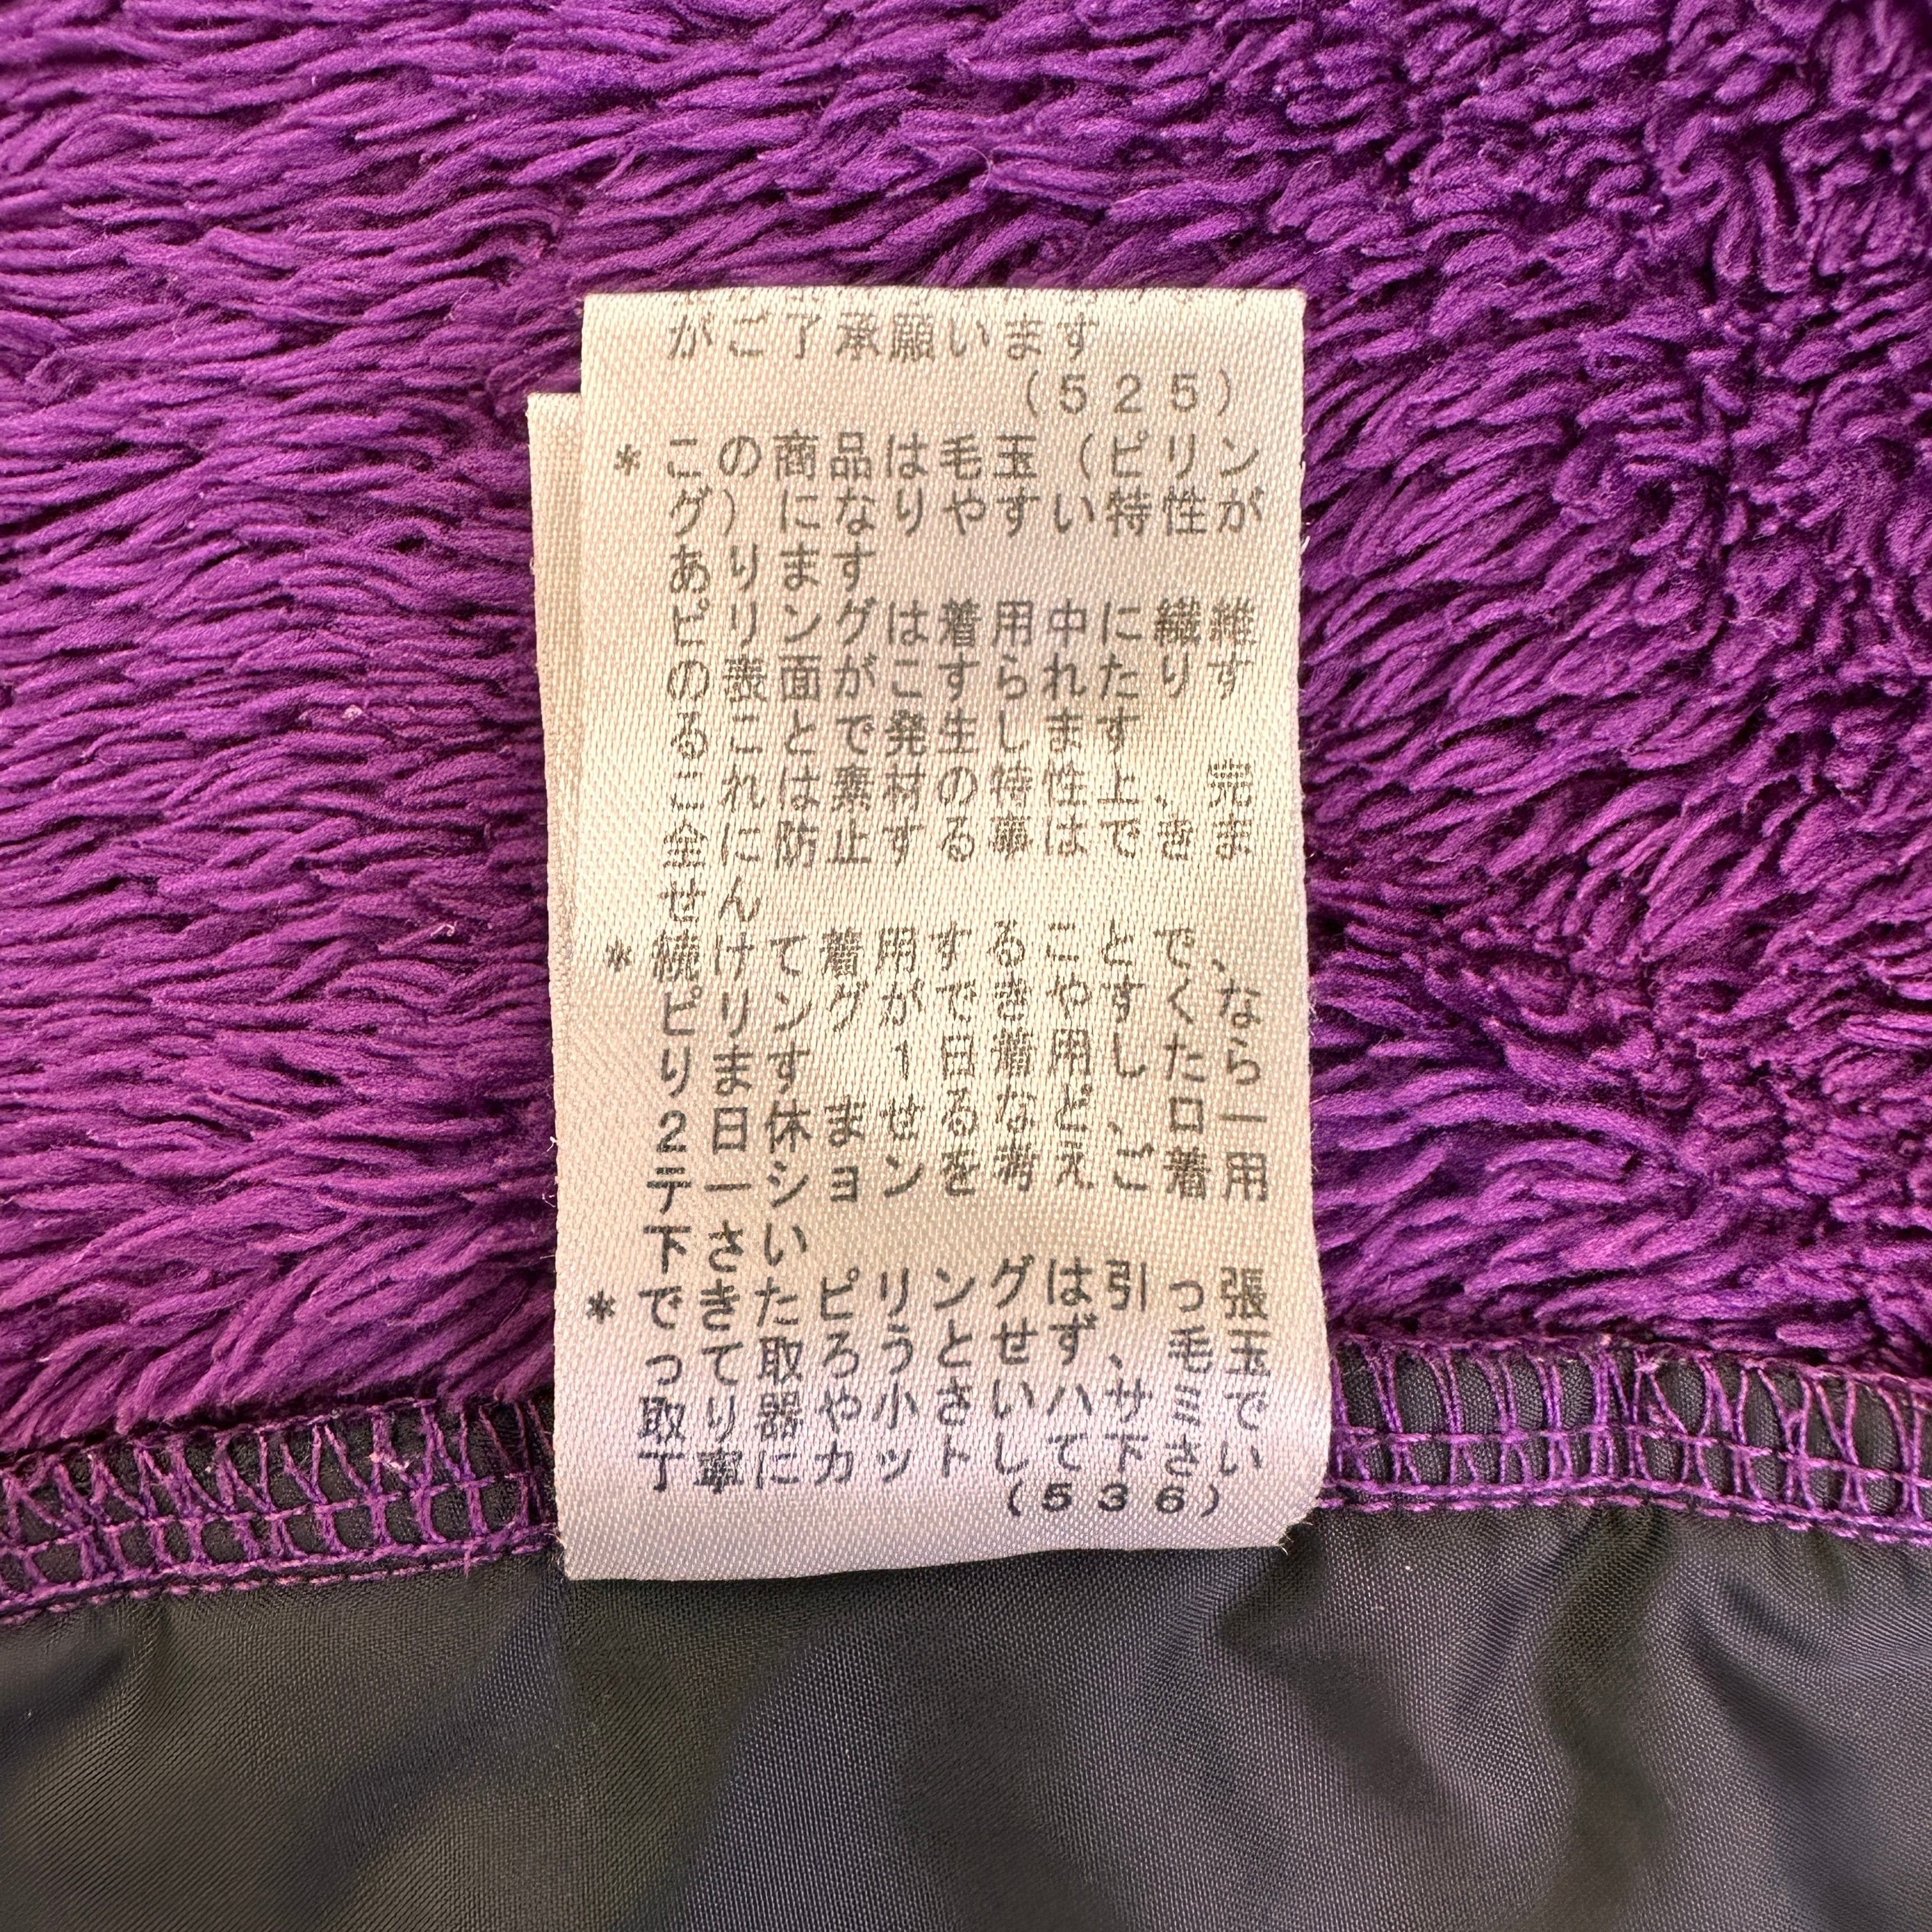 がご了承願います
(525)
*この商品は毛玉(ピリン
グ)になりやすい特性が
あります
ピリングは着用中に繊維
の表面がこすられたりす
ることで発生します
これは素材の特性上、完
全に防止する事はできま
せん
*続けて着用することで、
ピリングができやすくな
ります 1日着用したら
2日休ませるなど、ロー
テーションを考えご着用
下さい
*できたピリングは引っ張
って取ろうとせず、毛玉
取り器や小さいハサミで
丁寧にカットして下さい
(536)